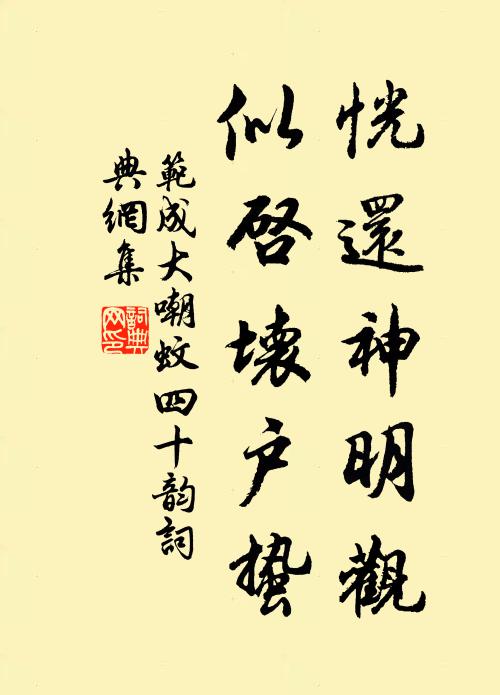 恍還神明觀
似啓壞戶蟄
範成大嘲蚊四十韵詞
典網集
詞典網印